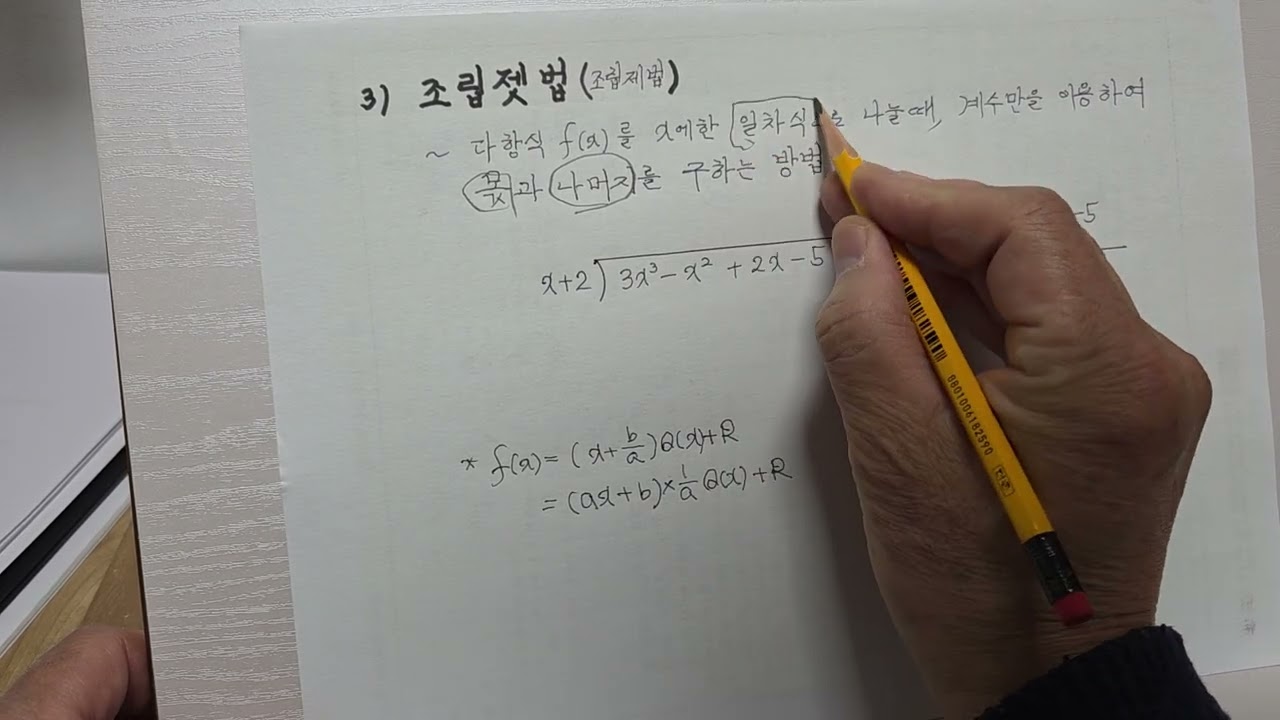 3) 조립젯법 (조립제법)
~ 다항식 f(x)를 x에한 일차식으로 나눌때, 계수만을 이용하여
몫과 나머지를 구하는 방법
-5
x+2 ) 3x³-x²+2x-5
* f(x)=(x+b/a)Q(x)+R
=(ax+b)×1/a Q(x)+R
8801006182590